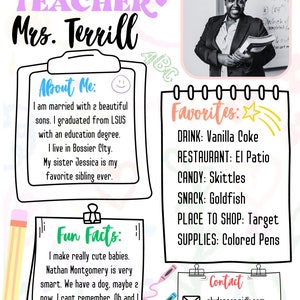 TEACHER
Mrs. Terrill
ABC
About Me:
I am married with 2 beautiful
sons. I graduated from LSUS
with an education degree.
I live in Bossier City.
My sister Jessica is my
favorite sibling ever.
Favorites:
DRINK: Vanilla Coke
RESTAURANT: El Patio
CANDY: Skittles
SNACK: Goldfish
PLACE TO SHOP: Target
SUPPLIES: Colored Pens
Fun Facts:
I make really cute babies.
Nathan Montgomery is very
smart. We have a dog, maybe 2
now. I cant remember. Oh and I
Contact